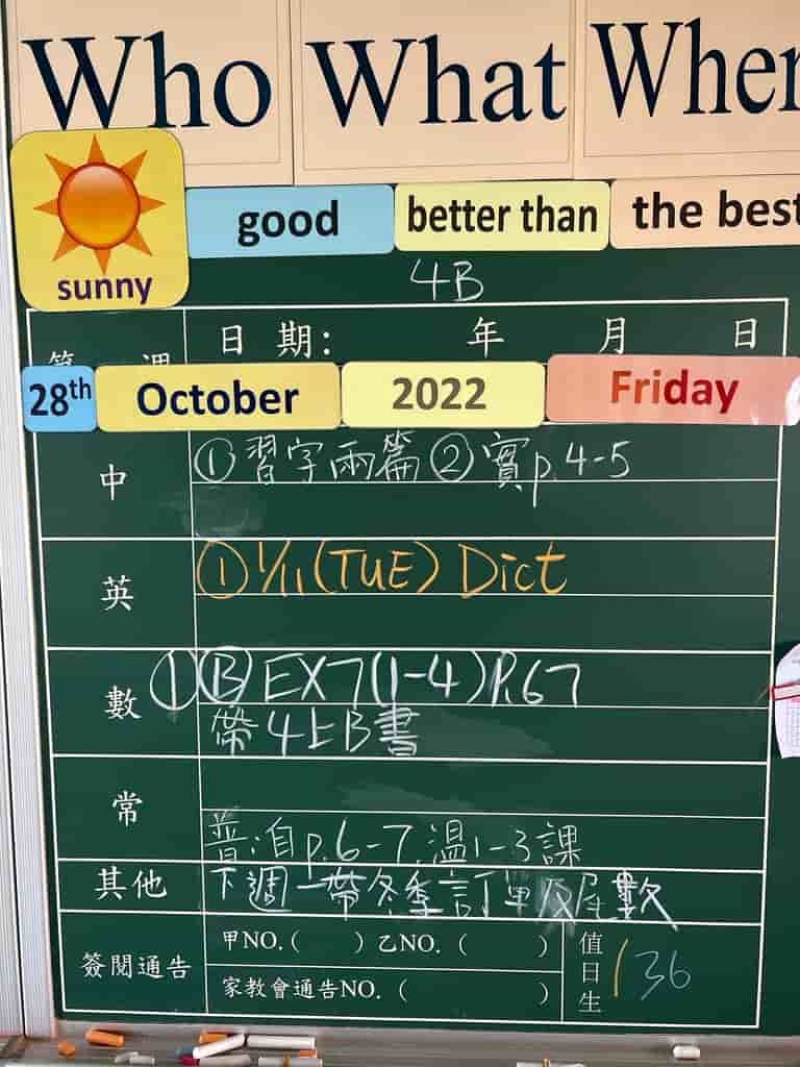 Who What When
sunny
good better than the best
4B
日 期: 年 月 日
28th October 2022 Friday
中 ①習字兩篇②實p.4-5
英 ①1/11(TUE) Dict
數 ①Ⓑ EX7(1-4)P.67
帶4上B書
常
普:自p.6-7.温1-3課
其他 下週一帶冬季訂單及尾數
簽閱通告 甲NO.( )乙NO.( )
家教會通告NO.( )
值日生 / 36